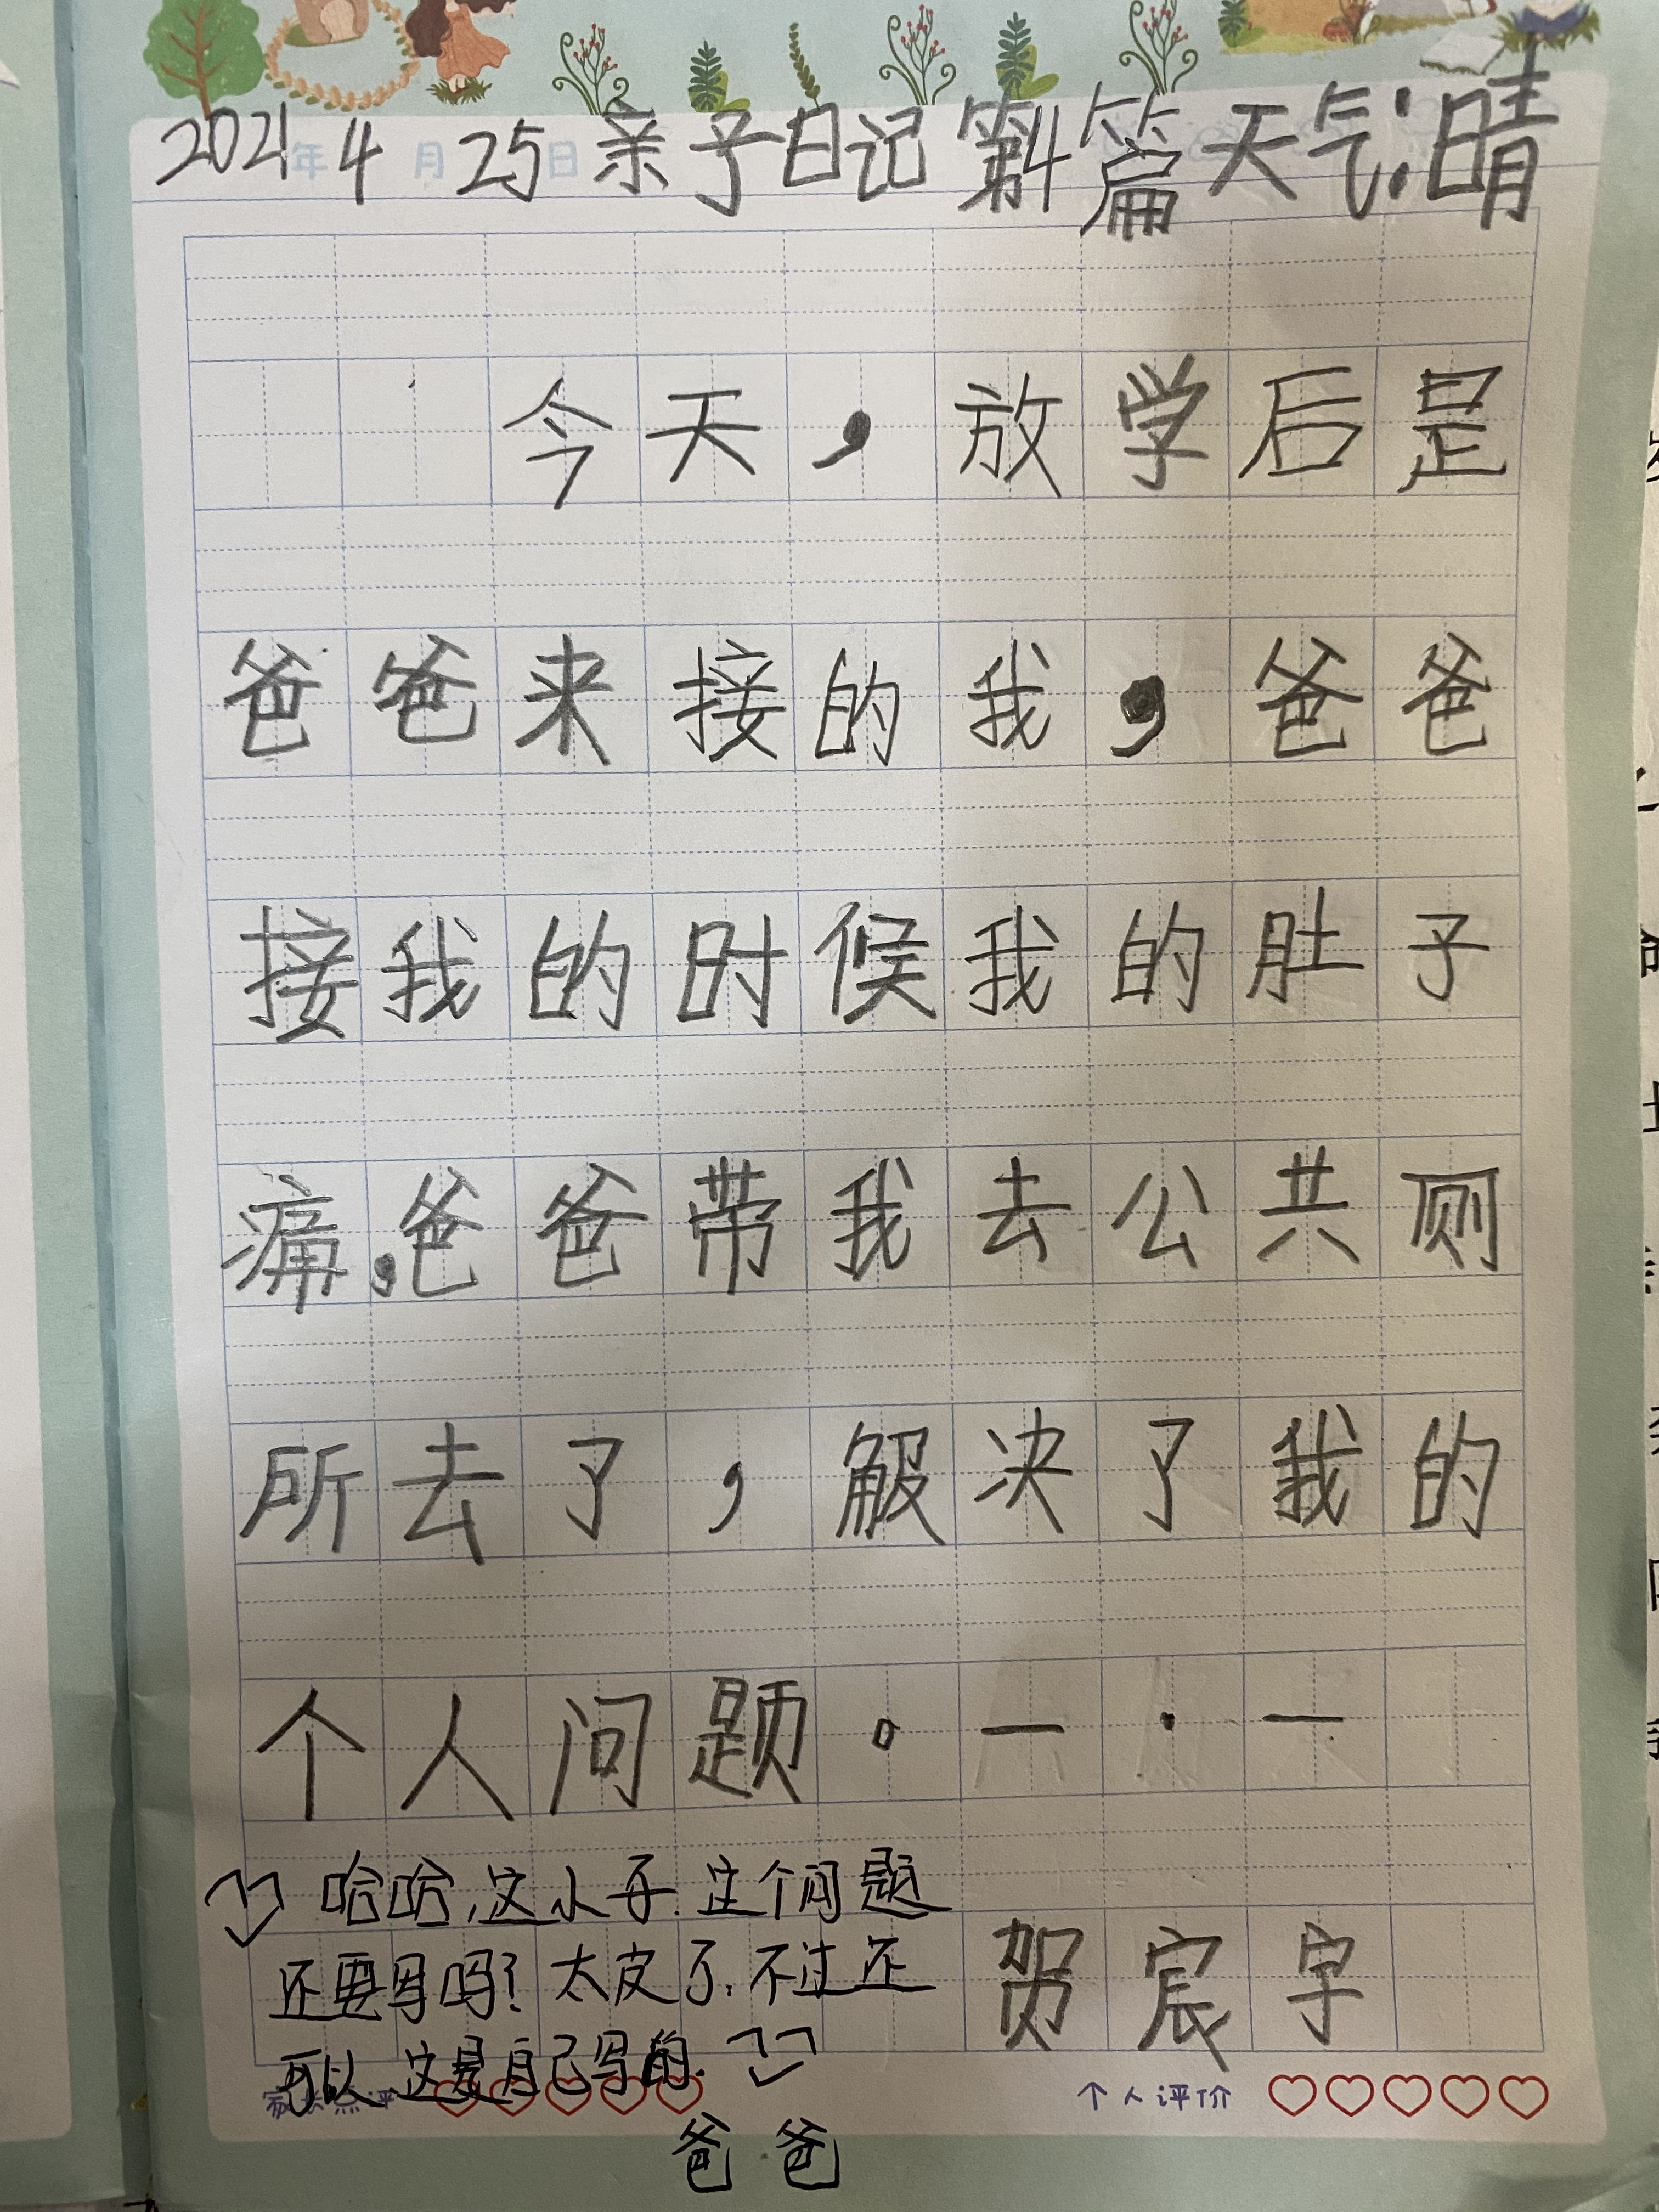 2021年4月25日亲子日记第4篇天气:晴
今天,放学后是
爸爸来接的我,爸爸
接我的时候我的肚子
痛,爸爸带我去公共厕
所去了,解决了我的
个人问题。一·一
哈哈,这小子.这个问题
还要写吗?太皮了.不过还
可以 这是自己写的.
贺宸宇
家长点评
个人评价
爸爸